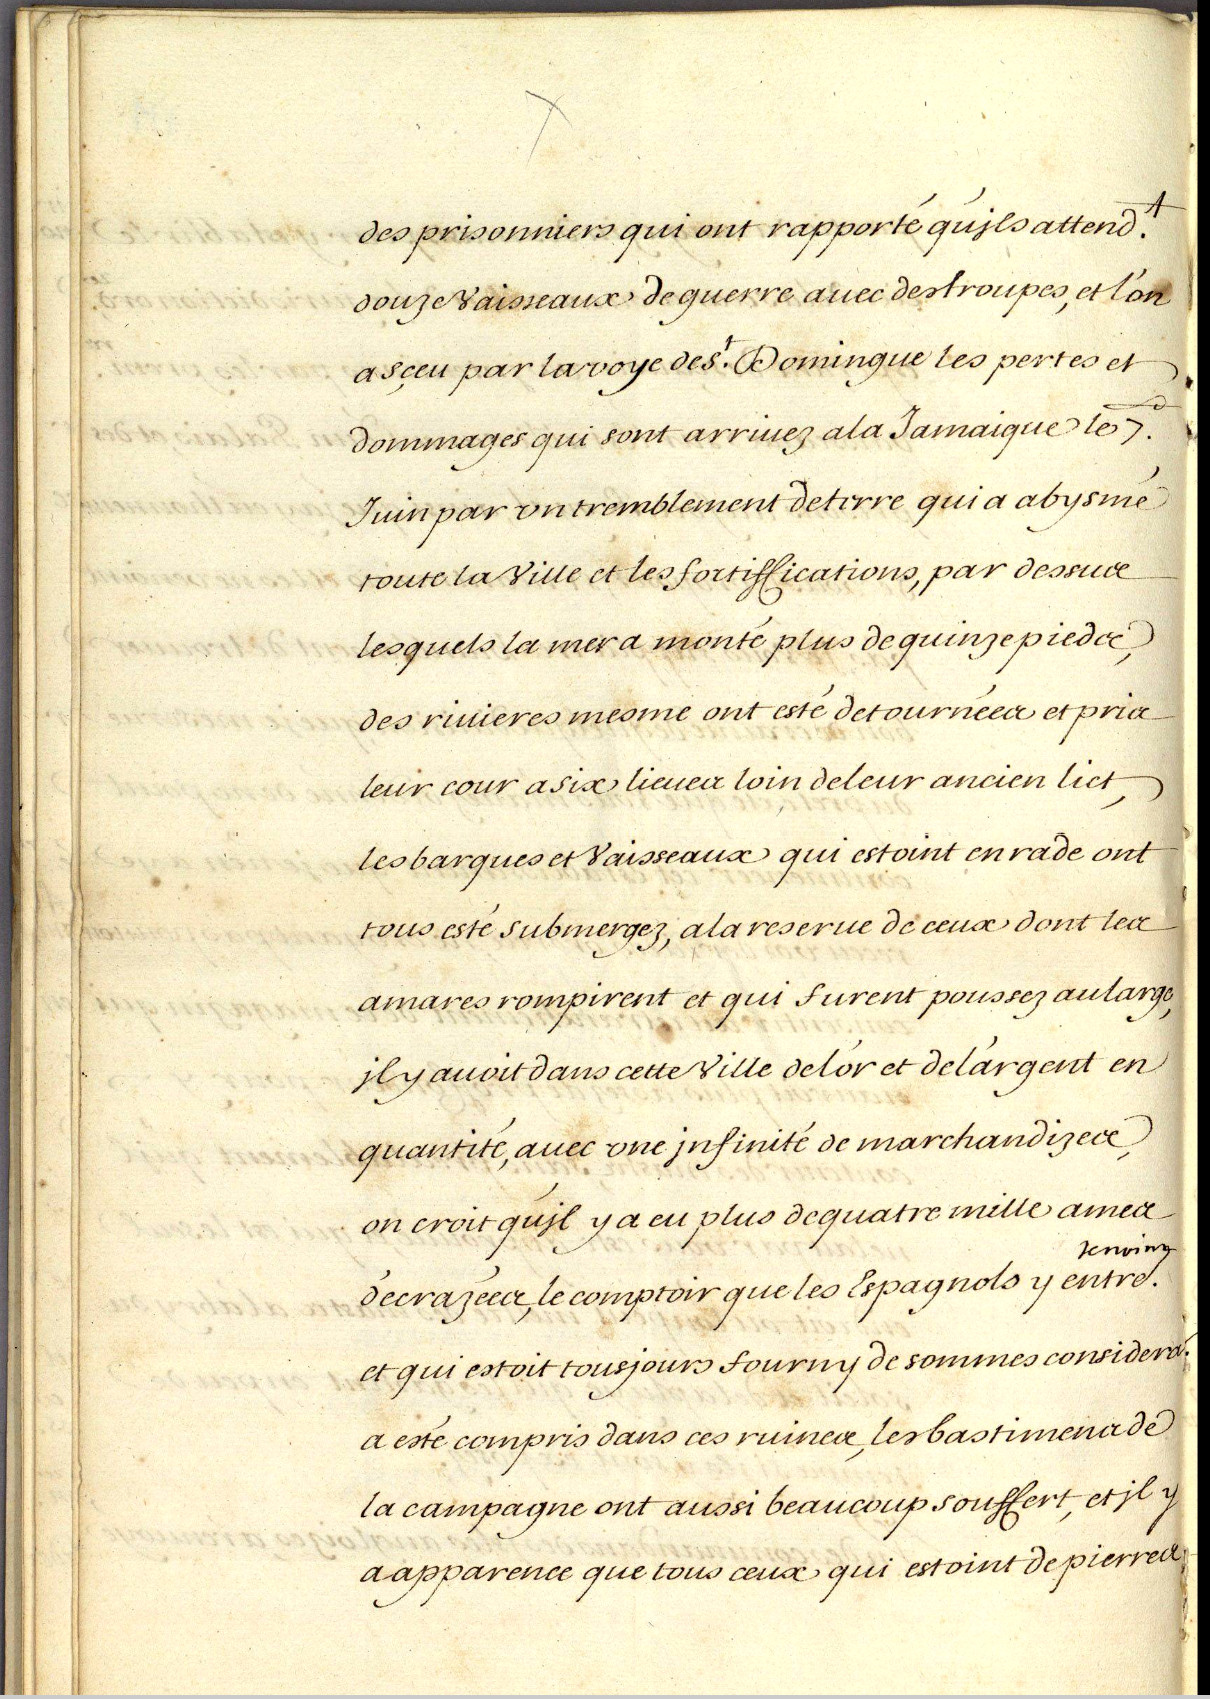 des prisonniers qui ont rapporté qu'jls attend.t
douze Vaisseaux de guerre auec des troupes, et l'on
a sçeu par la voye de s.t Domingue les pertes et
dommages qui sont arriuez a la Jamaique le 7.
Juin par vn tremblement de terre qui a abysmé
toute la Ville et les fortiffications, par dessus
lesquels la mer a monté plus de quinze pieds,
des riuieres mesme ont esté detournées et pris
leur cour a six lieues loin de leur ancien lict,
les barques et Vaisseaux qui estoint en rade ont
tous esté submergez, a la reserue de ceux dont les
amares rompirent et qui furent poussez au large,
jl y auoit dans cette Ville de l'or et de l'argent en
quantité, auec vne jnfinité de marchandizes,
on croit qu'jl y a eu plus de quatre mille ames
écrazées, le comptoir que les Espagnols y entre.
et qui estoit tousjours fourny de sommes considera.
a esté compris dans ces ruines, les bastimens de
la campagne ont aussi beaucoup souffert, et jl y
a apparence que tous ceux qui estoint de pierres